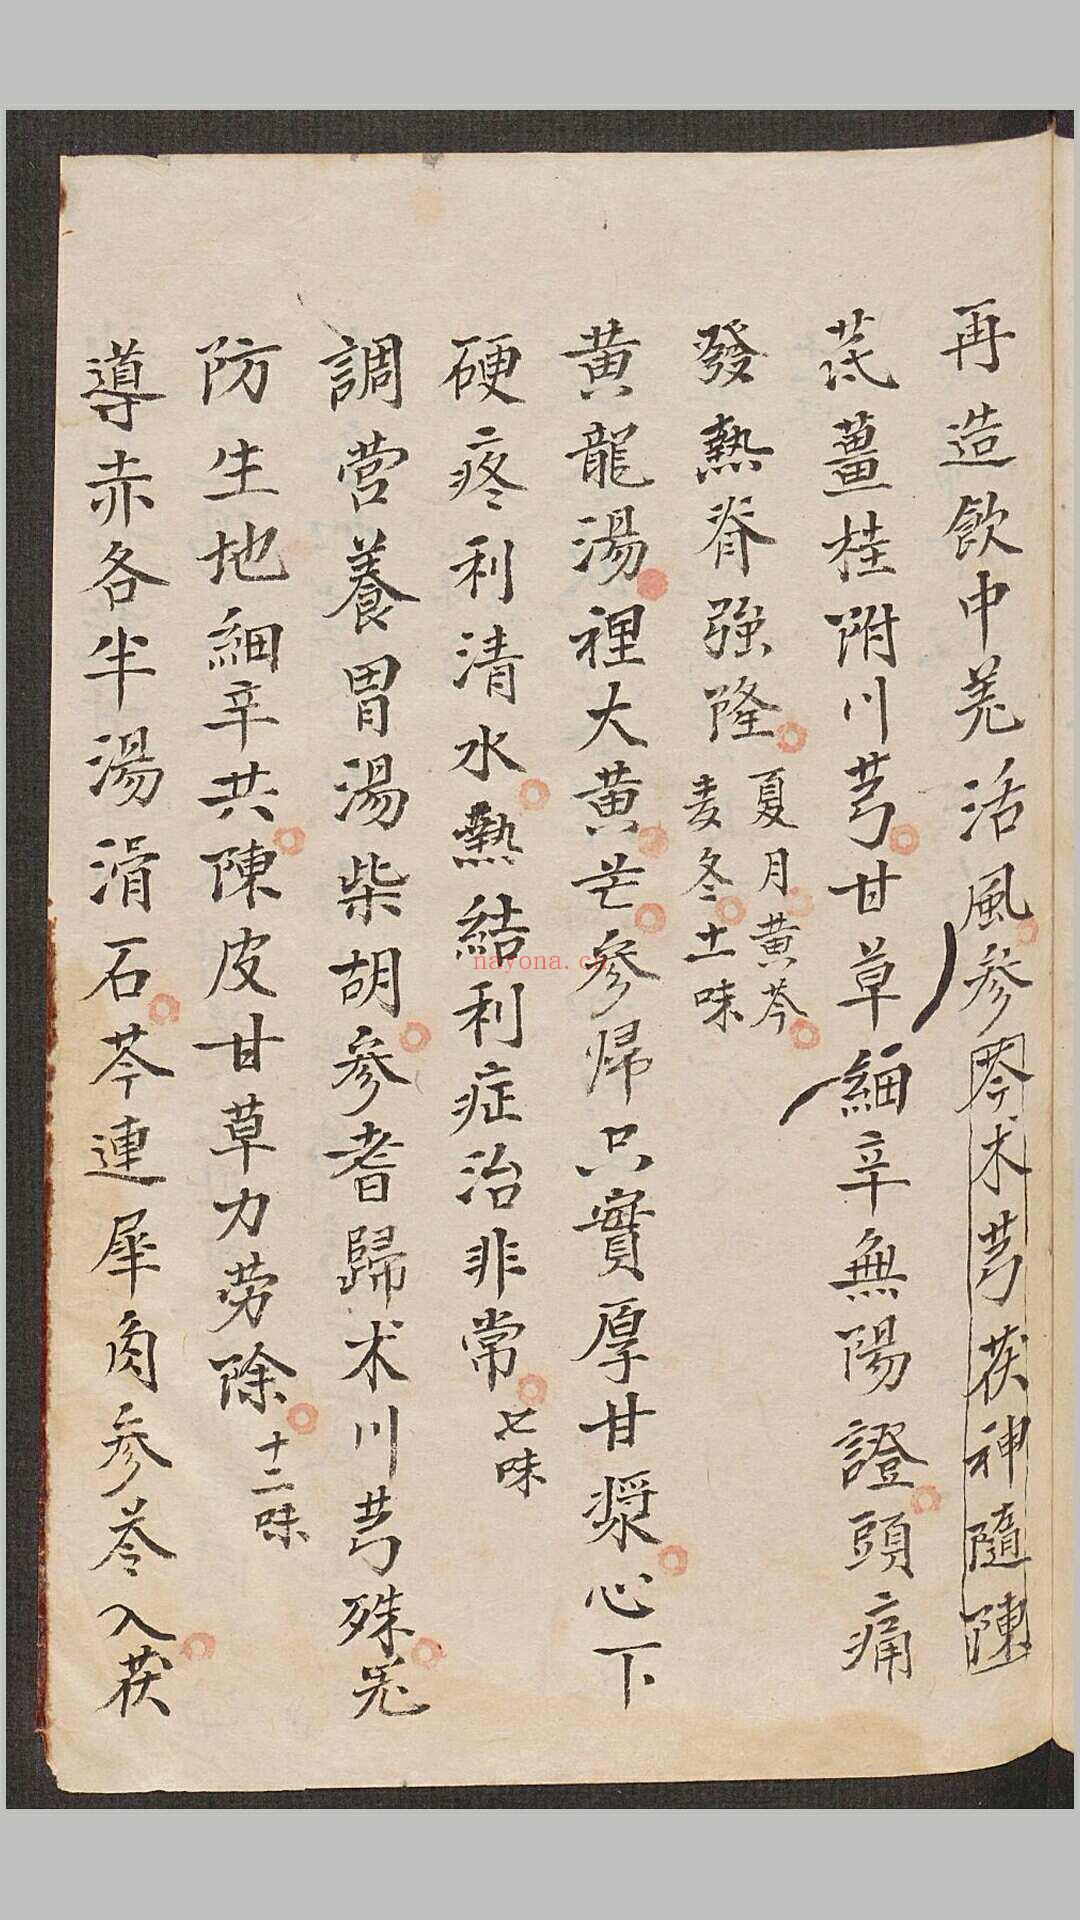 再造飲中羗活風參芩术芎茯神隨陳
芪薑桂附川芎甘草細辛無陽證頭痛
發熱脊强隆夏月黄芩麦冬十一味
黄龍湯裡大黄芒參归只實厚甘漿心下
硬疼利清水熱結利症治非常七味
調营養胃湯柴胡參耆歸术川芎殊羗
防生地細辛共陳皮甘草力劳除十二味
導赤各半湯滑石芩連犀角參苓入茯
nayona.cn